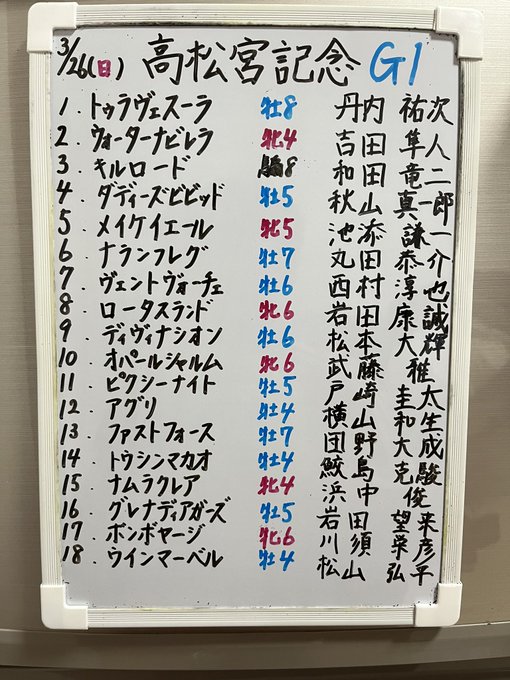 3/26(日) 高松宮記念 G1
1. トゥラヴェスーラ 牡8 丹内 祐次
2. ウォーターナビレラ 牝4 吉田 隼人
3. キルロード 騸8 和田 竜二
4. ダディーズビビッド 牡5 秋山 真一郎
5. メイケイエール 牝5 池添 謙一
6. ナランフレグ 牡7 丸田 恭介
7. ヴェントヴォーチェ 牡6 西村 淳也
8. ロータスランド 牝6 岩田 康誠
9. ディヴィナシオン 牡6 松本 大輝
10. オパールシャルム 牝6 武藤 雅
11. ピクシーナイト 牡5 戸崎 圭太
12. アグリ 牡4 横山 和生
13. ファストフォース 牡7 団野 大成
14. トウシンマカオ 牡4 鮫島 克駿
15. ナムラクレア 牝4 浜中 俊
16. グレナディアガーズ 牡5 岩田 望来
17. ボンボヤージ 牝6 川須 栄彦
18. ウインマーベル 牡4 松山 弘平